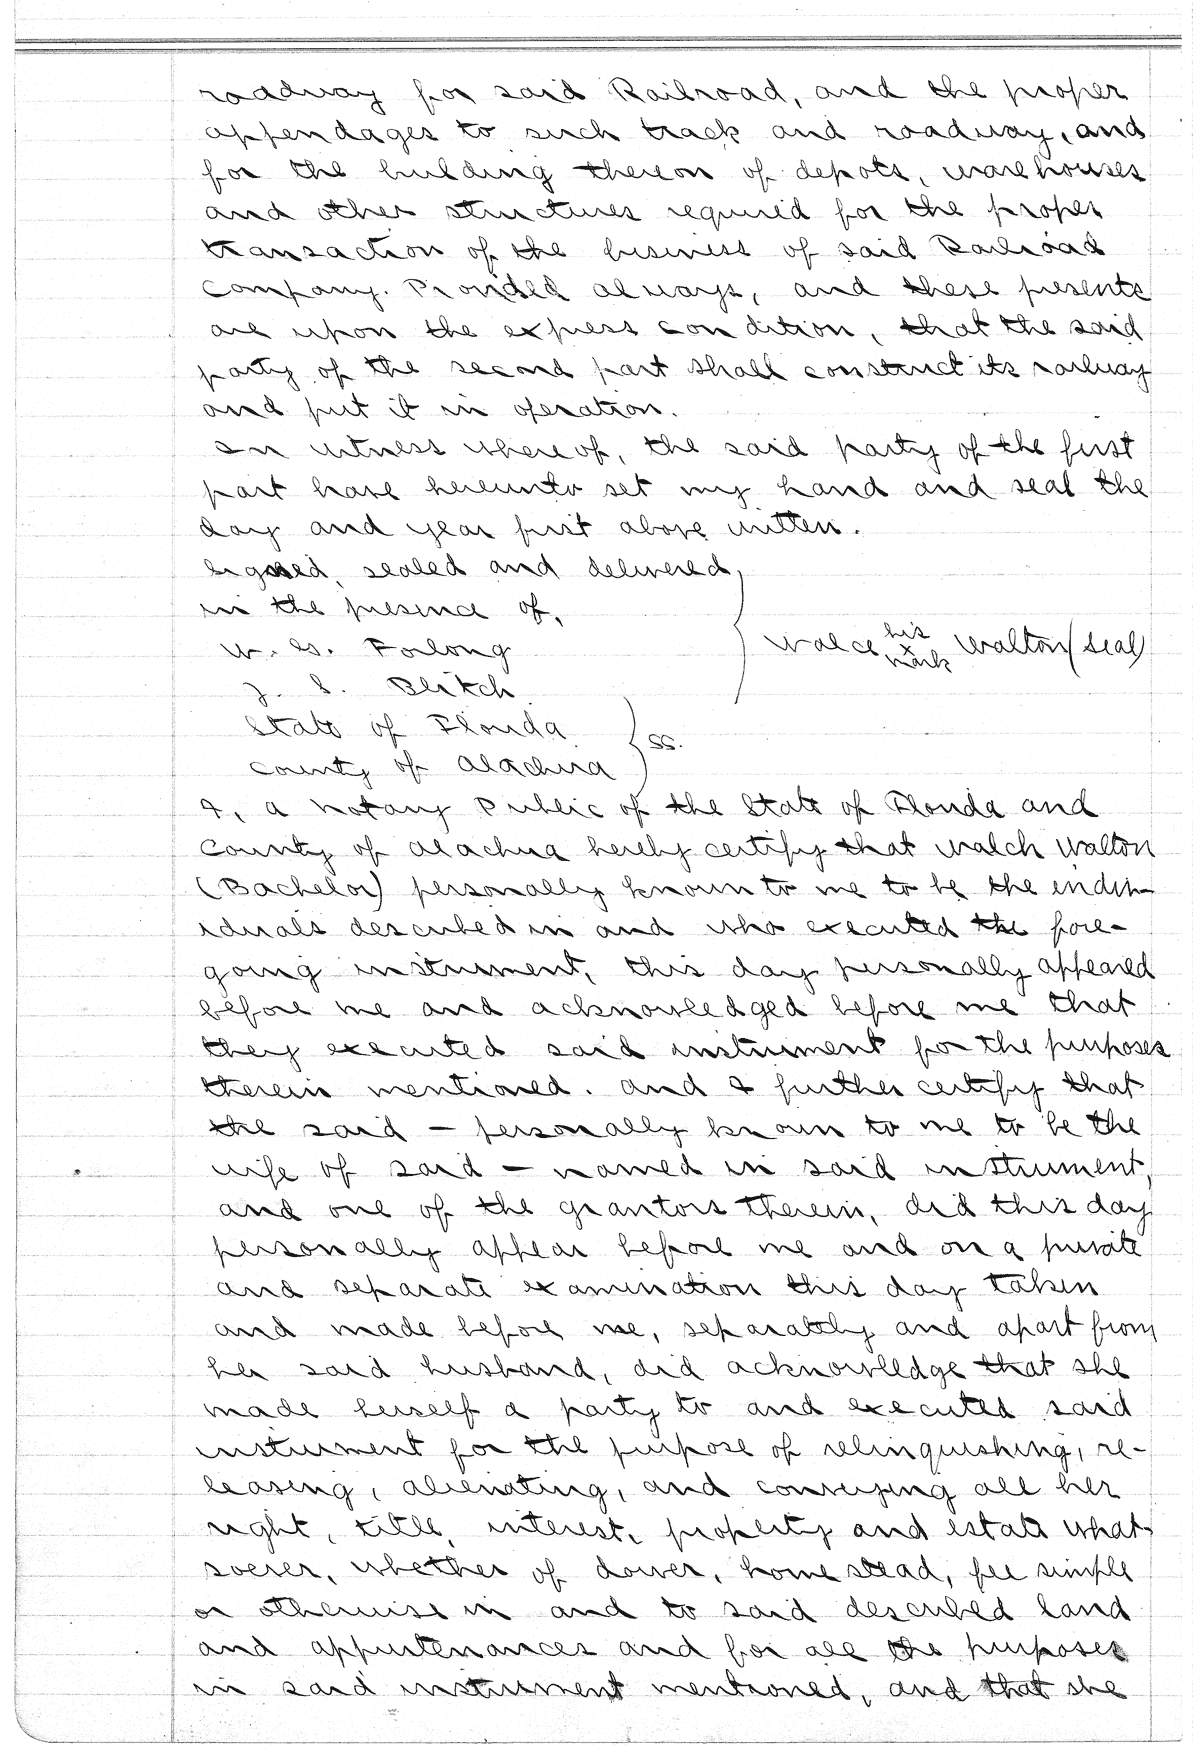 roadway for said Railroad, and the proper
appendages to such track and roadway, and
for the building thereon of depots, warehouses
and other structures required for the proper
transaction of the business of said Railroad
Company. Provided always, and these presents
are upon the express condition, that the said
party of the second part shall construct its railway
and put it in operation.
In witness whereof, the said party of the first
part have hereunto set my hand and seal the
day and year first above written.
Signed, sealed and delivered
in the presence of,
W. G. Forlong
J. S. Blitch
Walce his x mark Walton (seal)
State of Florida
County of Alachua } ss.
I, a Notary Public of the State of Florida and
County of Alachua hereby certify that Walch Walton
(Bachelor) personally known to me to be the indiv-
iduals described in and who executed the fore-
going instrument, this day personally appeared
before me and acknowledged before me that
they executed said instrument for the purposes
therein mentioned. And I further certify that
the said – personally known to me to be the
wife of said – named in said instrument,
and one of the grantors therein, did this day
personally appear before me and on a private
and separate examination this day taken
and made before me, separately and apart from
her said husband, did acknowledge that she
made herself a party to and executed said
instrument for the purpose of relinquishing, re-
leasing, alienating, and conveying all her
right, title, interest, property and estate what-
soever, whether of dower, homestead, fee simple
or otherwise in and to said described land
and appurtenances and for all the purposes
in said instrument mentioned, and that she